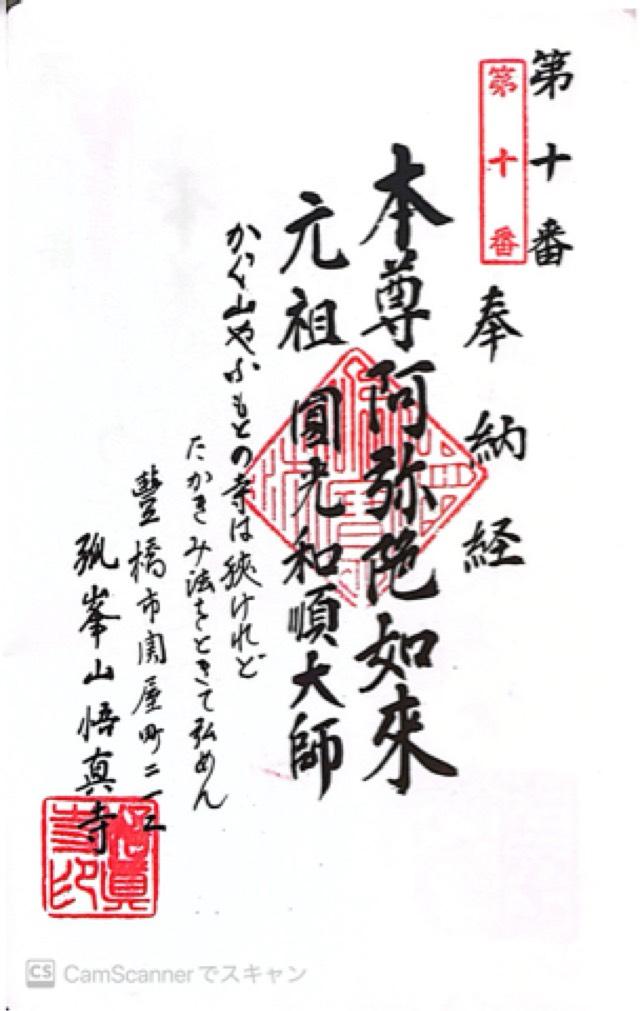 第十番
第十番
奉納経
本尊阿弥陀如來
元祖圓光和順大師
かぐ山やふもとの寺は狹けれど
たかきみ法をときて弘めん
豐橋市関屋町二
孤峯山悟真寺
悟真寺印
CS CamScannerでスキャン